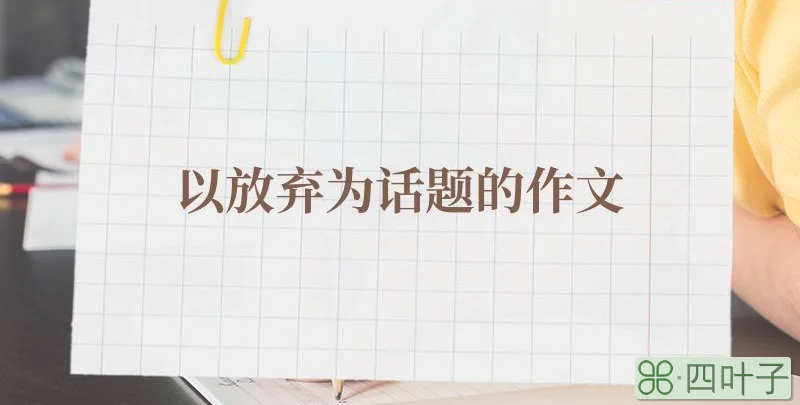 以放弃为话题的作文
四叶子